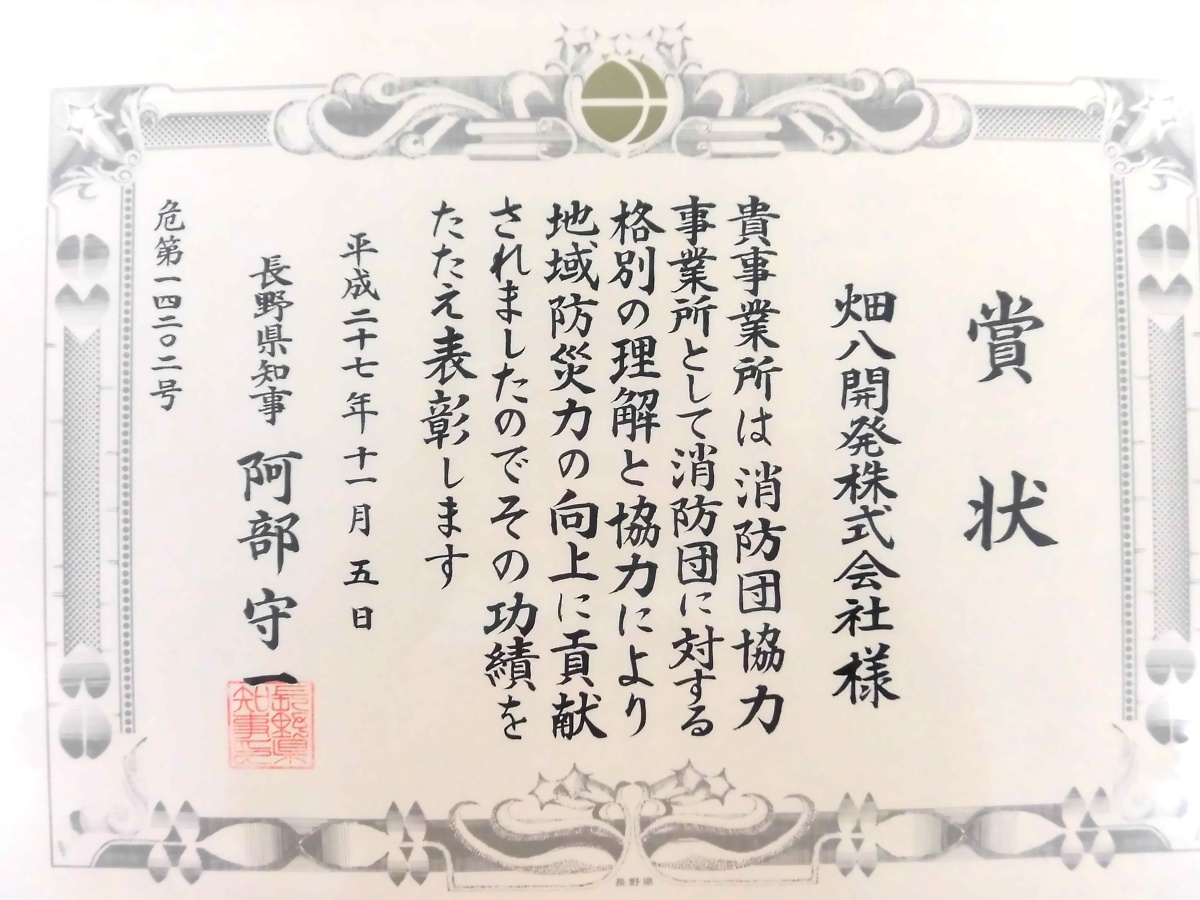 賞状
畑八開発株式会社様
貴事業所は消防団協力
事業所として消防団に対する
格別の理解と協力により
地域防災力の向上に貢献
されましたのでその功績を
たたえ表彰します
平成二十七年十一月五日
長野県知事 阿部守一
長野縣知事之印
危第一四二〇二号
長野県